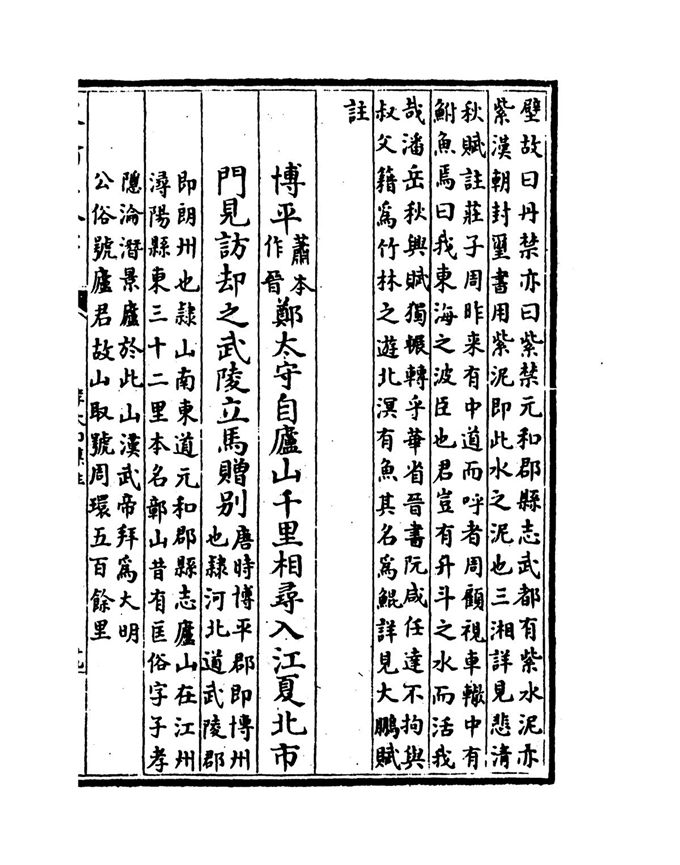 壁故曰丹禁亦曰紫禁元和郡縣志武都有紫水泥亦
紫漢朝封璽書用紫泥即此水之泥也三湘詳見悲清
秋賦註莊子周昨来有中道而呼者周顧視車轍中有
鮒魚焉曰我東海之波臣也君豈有升斗之水而活我
哉潘岳秋興賦獨輾轉乎華省晉書阮咸任達不拘與
叔父籍為竹林之遊北溟有魚其名為鯤詳見大鵬賦
註
博平蕭本作晉鄭太守自廬山千里相尋入江夏北市
門見訪却之武陵立馬贈别唐時博平郡即博州也隸河北道武陵郡
即朗州也隸山南東道元和郡縣志廬山在江州
潯陽縣東三十二里本名鄣山昔有匡俗字子孝
隱淪潛景廬於此山漢武帝拜為大明
公俗號廬君故山取號周環五百餘里